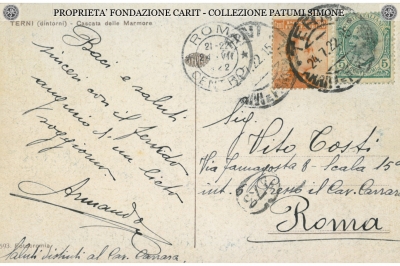 PROPRIETA' FONDAZIONE CARIT - COLLEZIONE PATUMI SIMONE
TERNI (dintorni) - Cascata delle Marmore
Baci e saluti
sinceri con il fervido
augurio di un lieto
soggiorno.
Armando
Saluti distinti al Cav. Carrara.
ROMA
CENTRO
TERNI
24.7.22
5
Sig.
Vito Costi
Via Famagosta 8 - Scala 15ª
int. 6 presso il Cav. Carrara
Roma